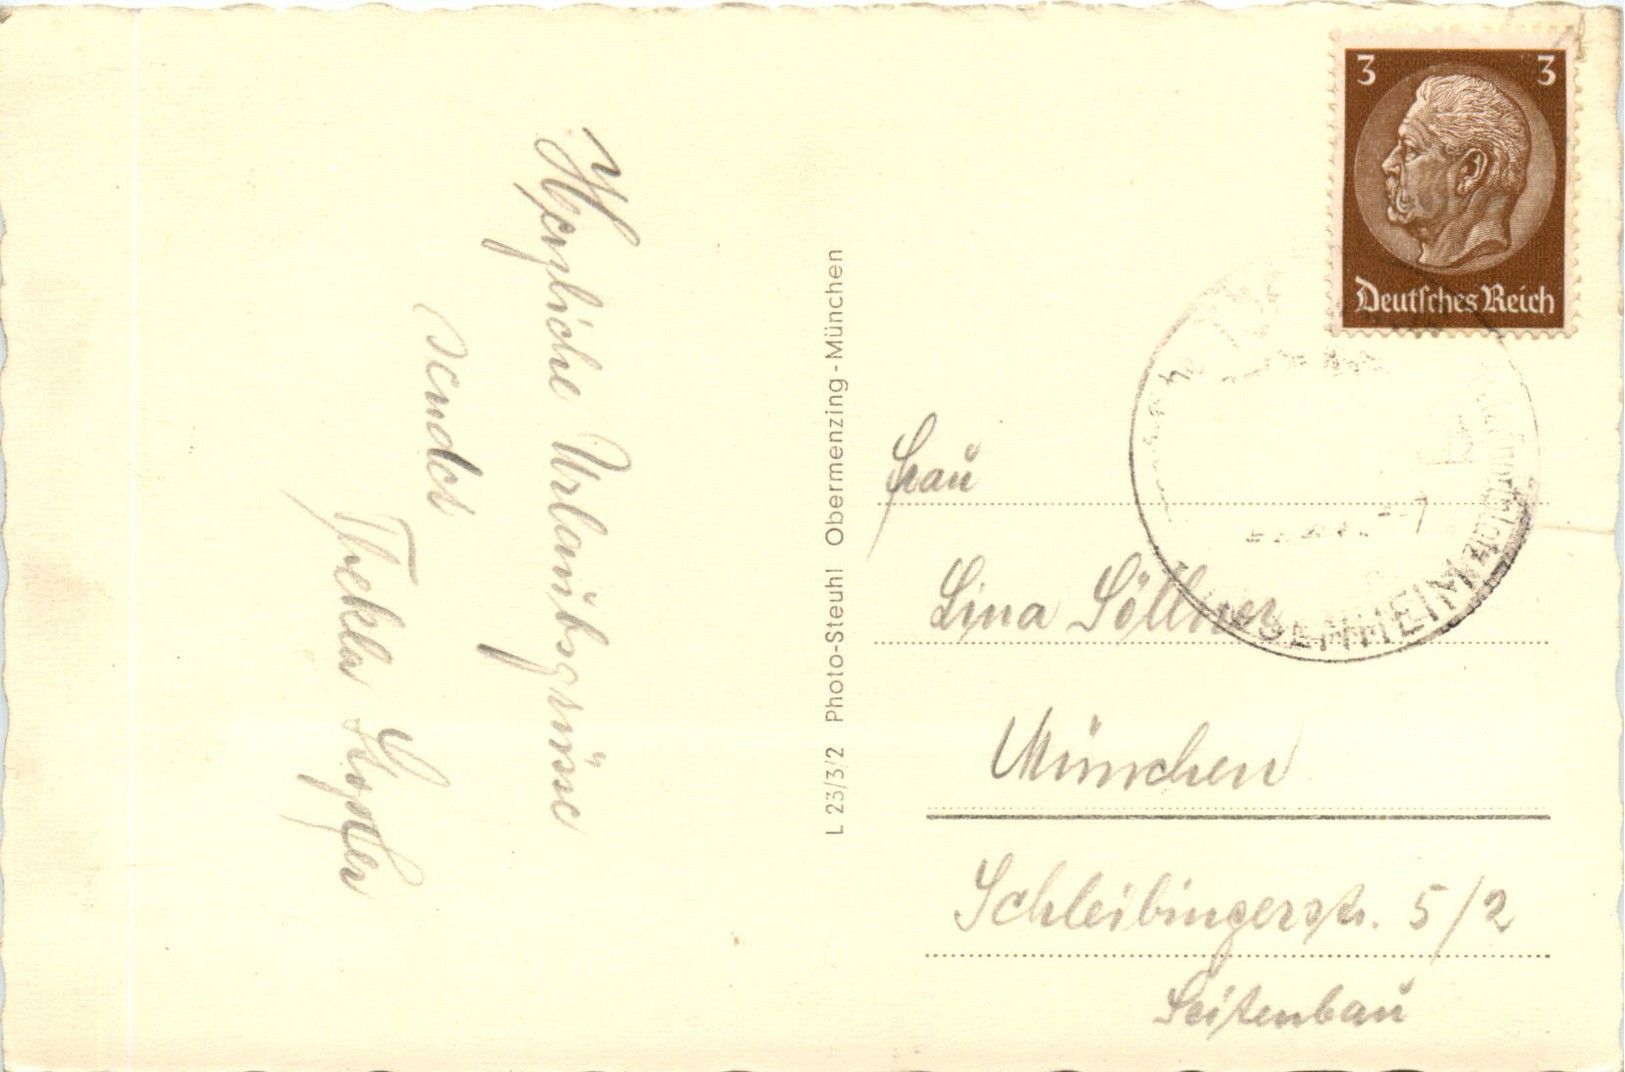 Herzliche Urlaubsgrüsse
sendet
Thekla
L 23/3/2 Photo-Steuhl Obermenzing-München
3 3
Deutsches Reich
Frau
Lina Söllner
München
Schleibingerstr. 5/2
Seitenbau